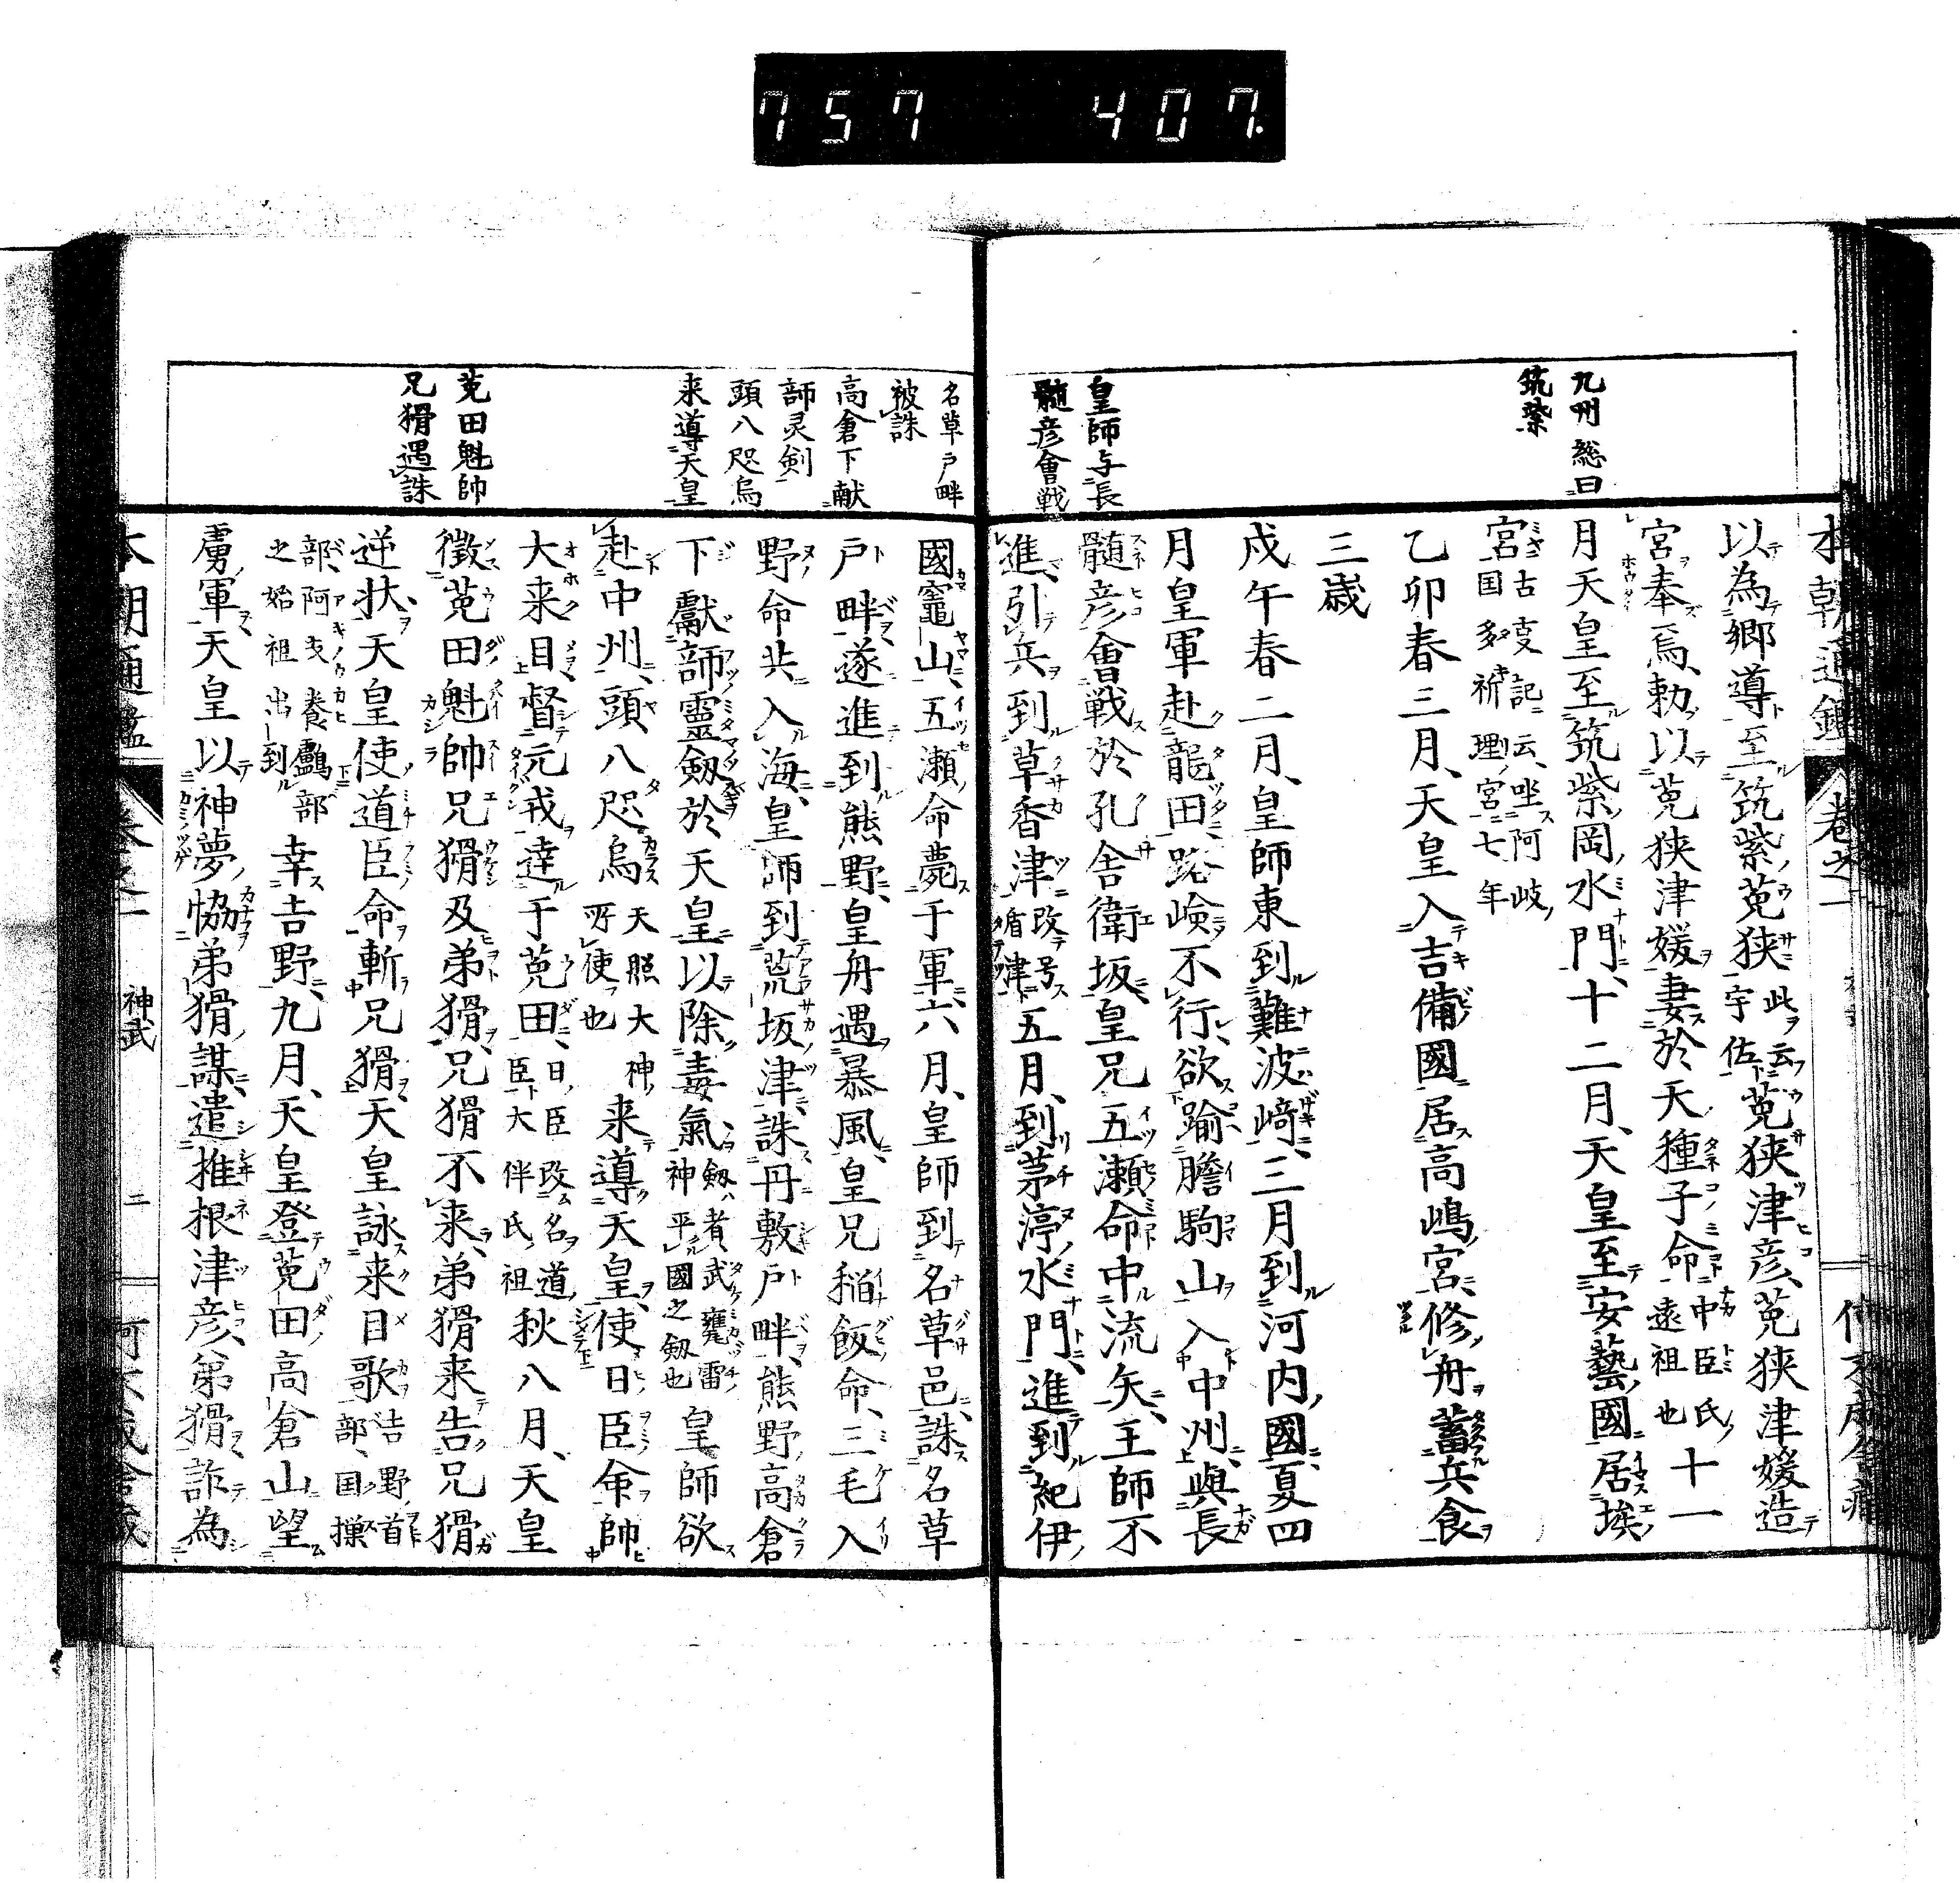 757 407.
九州総曰
筑紫
皇師与長
髄彦會戦
本朝通鑑 巻之一
以為郷導至筑紫菟狭 此云宇佐 菟狭津彦、菟狭津媛造
宮奉焉、勅以菟狭津媛妻於天種子命 中臣氏遠祖也 十一
月天皇至筑紫岡水門、十二月、天皇至安藝國居埃
宮 古事記云、坐阿岐国多祁理宮七年
乙卯春三月、天皇入吉備國居高嶋宮、修舟蓄兵食
三歳
戊午春二月、皇師東到難波﨑、三月到河内國、夏四
月皇軍赴龍田、路嶮不行、欲踰膽駒山入中州、與長
髄彦會戦於孔舎衛坂、皇兄五瀬命中流矢、王師不
進、引兵到草香津 改号盾津 五月、到茅渟水門、進到紀伊
名草戸畔
被誅
高倉下献
韴灵剣
頭八咫烏
来導天皇
菟田魁帥
兄猾遇誅
國竈山、五瀬命薨于軍、六月、皇師到名草邑、誅名草
戸畔、遂進到熊野、皇舟遇暴風、皇兄稲飯命、三毛入
野命共入海、皇師到荒坂津、誅丹敷戸畔、熊野高倉
下獻韴靈剱於天皇以除毒氣 剱者武甕雷神平國之剱也 皇師欲
赴中州、頭八咫烏 天照大神所使也 来導天皇、使日臣命帥
大来目督元戎達于菟田、 日臣改名道臣大伴氏祖 秋八月、天皇
徴菟田魁帥兄猾及弟猾、兄猾不来、弟猾来告兄猾
逆状、天皇使道臣命斬兄猾、天皇詠来目歌 吉野首部、国樔
部、阿支養鸕部之始祖出到 幸吉野、九月、天皇登菟田高倉山望
虜軍、天皇以神夢、恊弟猾謀、遣椎根津彦、弟猾詐為
本朝通鑑 巻之一 神武 二